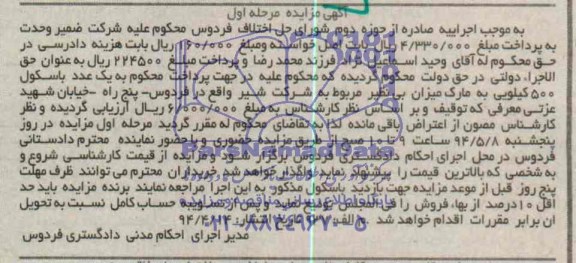 آگهی مزایده مرحله اول
به موجب اجراییه صادره از حوزه دوم شورای حل اختلاف فردوس محکوم علیه شرکت ضمیر وحدت
به پرداخت مبلغ ۴/۳۳۰/۰۰۰ ریال بابت اصل خواسته ومبلغ ۱۶۰/۰۰۰ ریال بابت هزینه دادرسی در
حق محکوم له آقای وحید اسماعیل زاده فرزند محمد رضا و پرداخت مبلغ ۲۲۴۵۰۰ ریال به عنوان حق
الاجراء دولتی در حق دولت محکوم گردیده که محکوم علیه در جهت پرداخت محکوم به یک عدد باسکول
۵۰۰ کیلویی به مارک میزان بی نظیر مربوط به شرکت شیر واقع در فردوس- پنج راه -خیابان شهید
عزتی معرفی که توقیف و بر اساس نظر کارشناس به مبلغ ۶/۰۰۰/۰۰۰ ریال ارزیابی گردیده و نظر
کارشناس مصون از اعتراض باقی مانده لذا به تقاضای محکوم له مقرر گردید مرحله اول مزایده در روز
پنجشنبه ۹۴/۵/۸ ساعت ۹ تا ۱۰ صبح از طریق مزایده حضوری و با حضور نماینده محترم دادستانی
فردوس در محل اجرای احکام دادگستری فردوس برگزار شود و مزایده از قیمت کارشناسی شروع و
به شخصی که بالاترین قیمت را پیشنهاد نماید واگذار خواهد شد خریداران محترم می توانند ظرف مهلت
پنج روز قبل از موعد مزایده جهت بازدید باسکول مذکور به این اجرا مراجعه نمایند برنده مزایده باید حد
اقل ۱۰ درصد از بهاء فروش را فی المجلس تودیع نماید و پس از تسویه حساب کامل نسبت به تحویل
آن برابر مقررات اقدام خواهد شد م الف تاریخ انتشار ۹۴/۴/۲۴
مدیر اجرای احکام مدنی دادگستری فردوس
ParsNamadData
۰۲۱-۸۸۳۴۹۶۷۰-۵